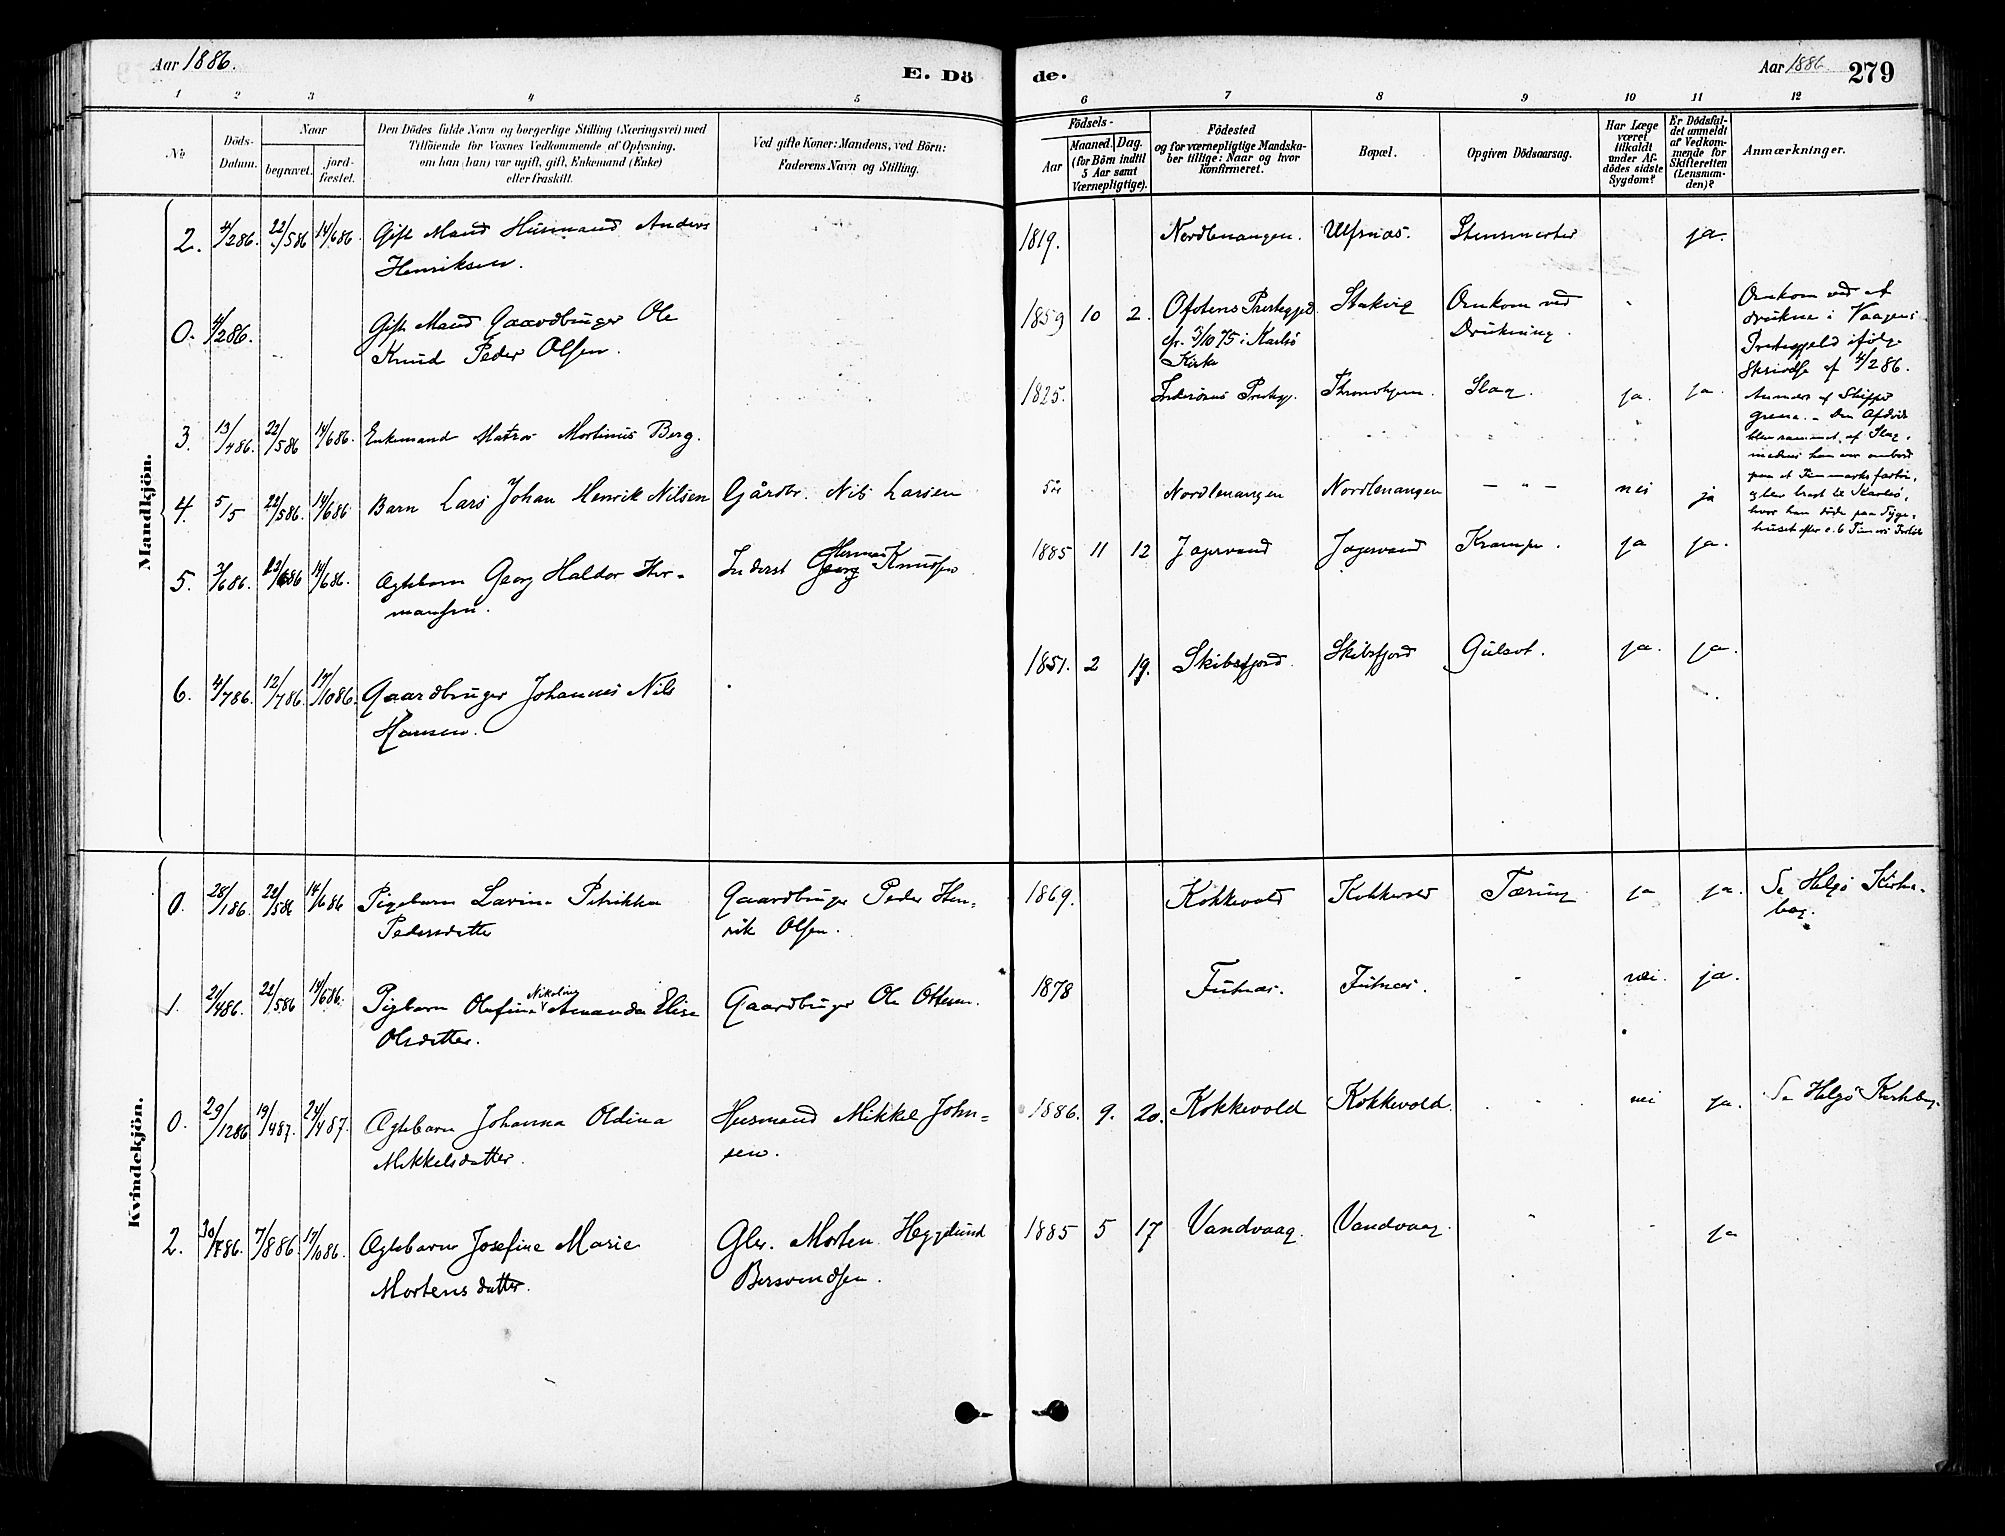 Aar 1886.
E. Dö
de.
Aar 1886
279
1 2 3 4 5 6 7 8 9 10 11 12
No
Döds-
Datum.
Naar
begravet.
jord-
fæstet.
Den Dödes fulde Navn og borgerlige Stilling (Næringsvei) med
Tilföiende for Voxnes Vedkommende af Oplysning,
om han (hun) var ugift, gift, Enkemand (Enke)
eller fraskilt.
Ved gifte Koner: Mandens, ved Börn:
Faderens Navn og Stilling.
Födsels-
Aar
Maaned. Dag.
(for Börn indtil
5 Aar samt
Værnepligtige).
Födested
og for værnepligtige Mandska-
ber tillige: Naar og hvor
konfirmeret.
Bopæl.
Opgiven Dödsaarsag.
Har Læge
været
tilkaldt
under Af-
dödes sidste
Sygdom?
Er Dödsfal-
det anmeldt
af Vedkom-
mende for
Skifteretten
(Lensman-
den)?
Anmærkninger.
Mandkjön.
2. 4/286. 22/586 14/686. Gift Mand Husmand Anders
Henriksen.
1819. Nordlenangen. Ulfsnæs. Stensmerter ja.
0. 4/286. Gift Mand Gaardbruger Ole
Knud Peder Olsen.
1859 10 2. Ofotens Prestegjed
cfr. 3/10 75 i Karlsö
Kirke
Stakvig Omkom ved
Drukning.
Omkom ved at
drukne i Vaagens
Prestegjeld ifölge
Skrivelse af 4/286.
3. 13/486. 22/586 14/686. Enkemand Matros Mortinus Berg.
1825. Inderöens Prestegj. Throndhjem. Slag. ja. ja.
4. 5/5 22/586. 14/686. Barn Lars Johan Henrik Nilsen Gårdbr. Nils Larsen
5 år Nordlenangen Nordlenangen — " — nei ja
hvor han döde paa Syge-
5. 3/686. 14/686. Ægtebarn Georg Haldor Her-
mansen.
Inderst Herman Georg Knudsen
1885 11 12 Jægervand Jægervand Krampe. ja ja.
6. 4/786. 12/786. 17/1086. Gaardbruger Johannes Nils
Hansen.
1851. 2 19. Skibsfjord. Skibsfjord Gulsot. ja. ja.
Kvindekjön.
0. 28/186. 22/586 14/686 Pigebarn Lavina Petrikka
Pedersdatter
Gaardbruger Peder Hen-
rik Olsen.
1869. Kokkevold Kokkevold Tæring ja ja. Se Helgö Kirke-
bog.
1. 21/486. 22/586 14/686. Pigebarn Olufine Nikoline Amanda Elise
Olsdatter.
Gaardbruger Ole Ottesen.
1878 Futnæs. Futnæs. nei ja.
0. 29/1286 19/487. 24/487. Ægtebarn Johanna Oldina
Mikkelsdatter.
Husmand Mikkel John-
sen.
1886. 9. 20. Kokkevold Kokkevold. nei ja. Se Helgö Kirkebog.
2. 30/786. 7/886 17/1086. Ægtebarn Josefine Marie
Mortensdatter.
Gbr. Morten Hegglund
Bersvendsen.
1885 5 17 Vandvaag. Vandvaag. ja